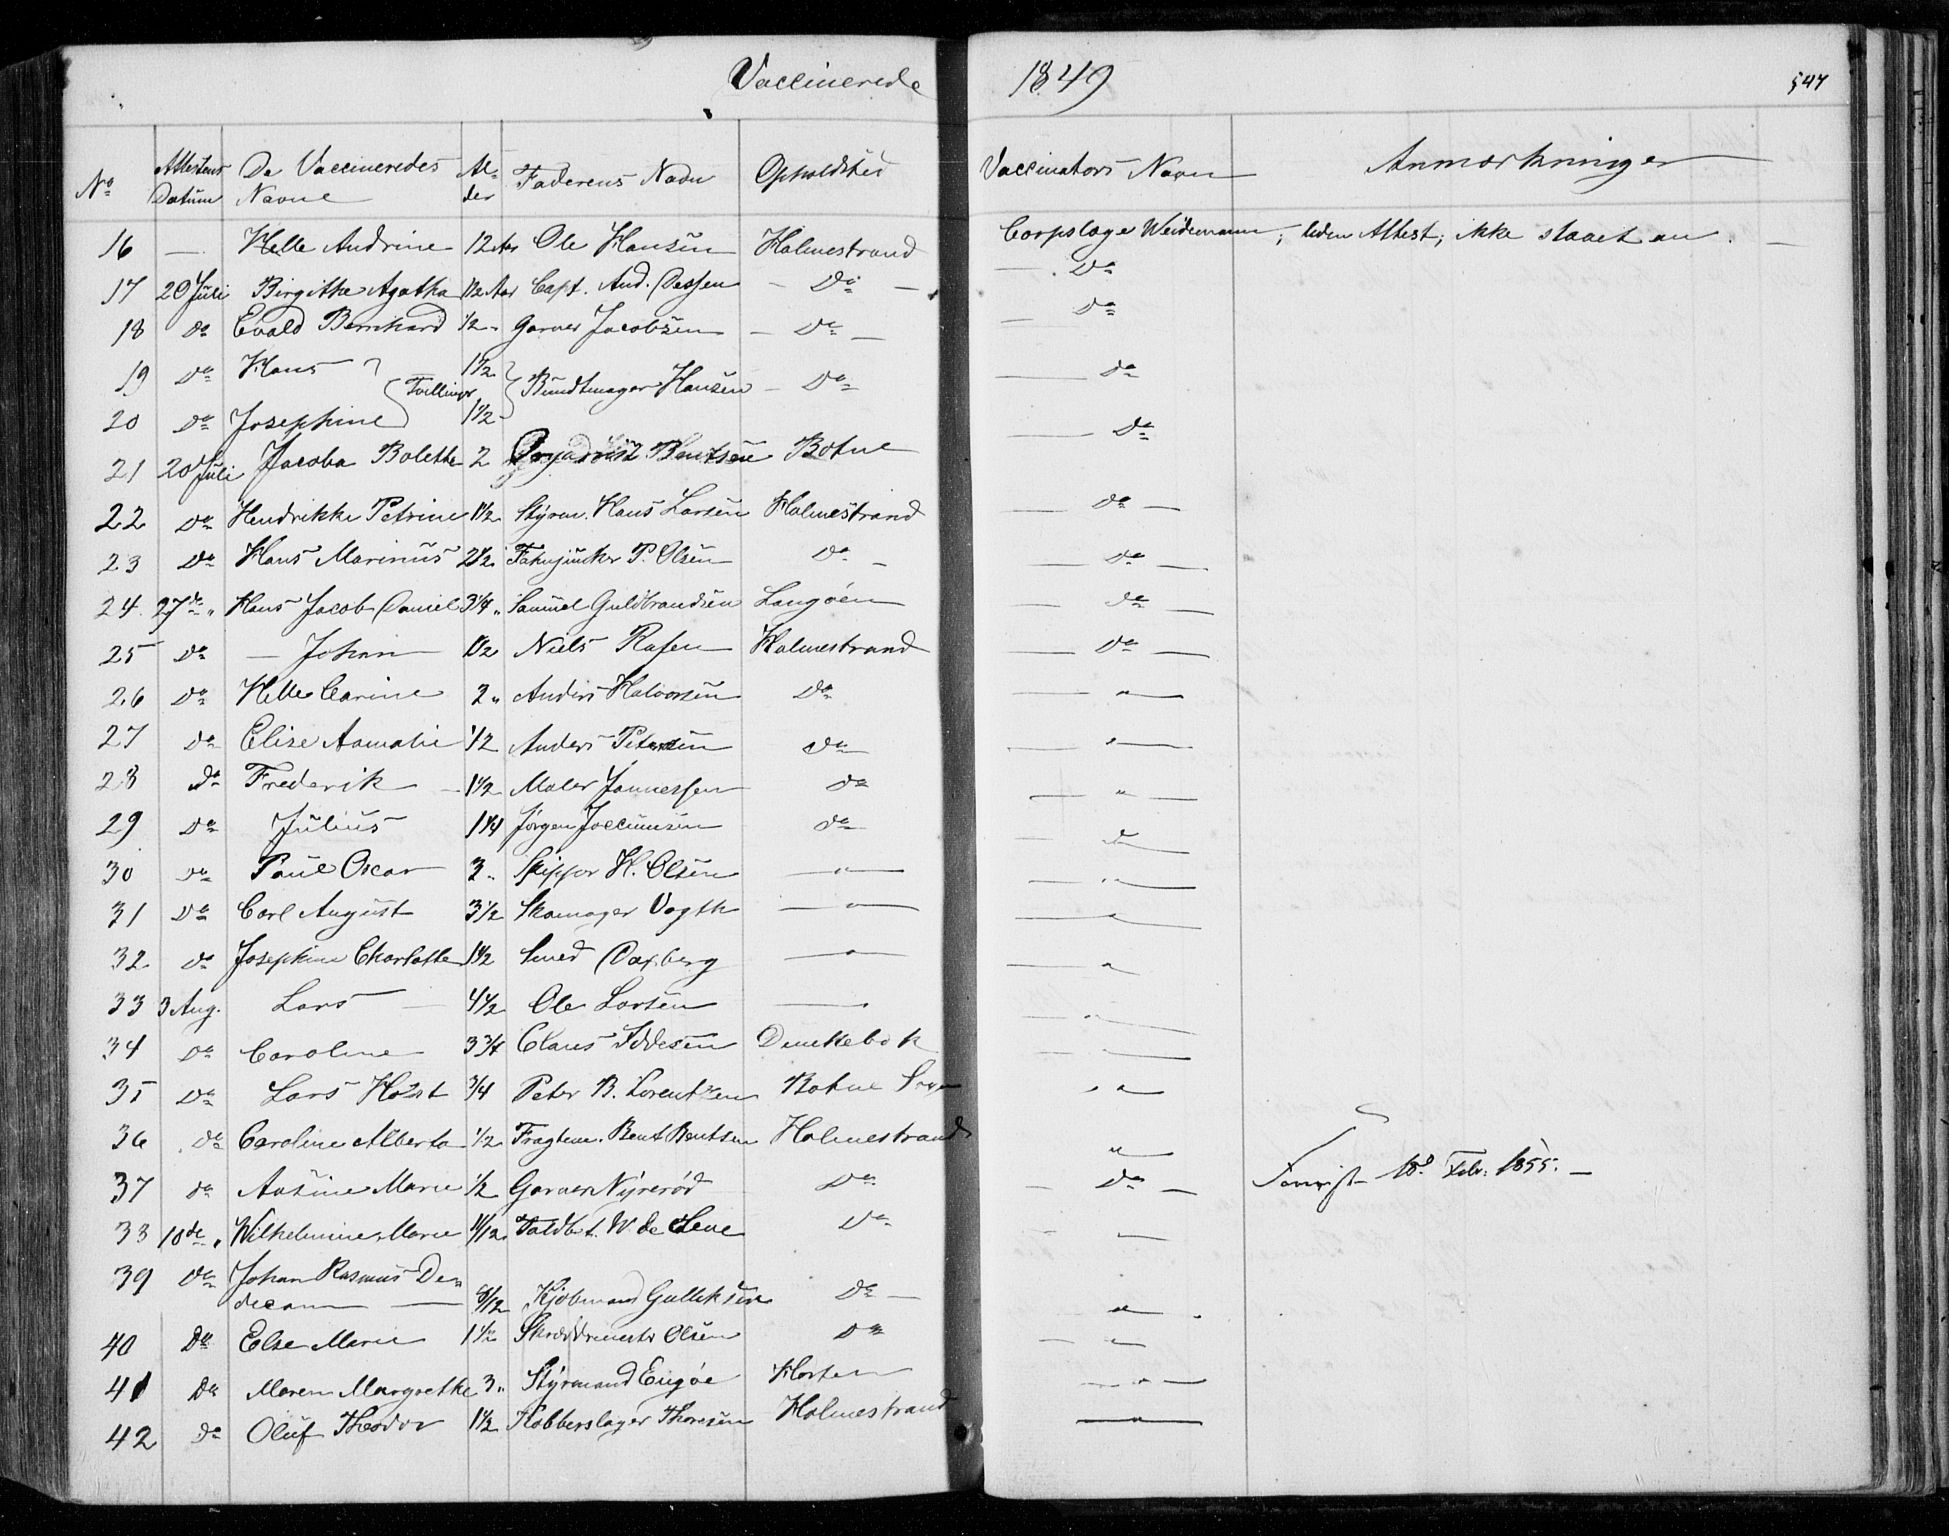 Vaccinerede 1849 547
No Attestens Datum De Vaccineredes Navne Al- der Faderens Navn Opholdsted Vaccinators Navn Anmærkninger
16 — Helle Andrine 12 Aar Ole Hansen Holmestrand Corpslæge Weidemann; uden Attest; ikke slaaet an. —
17 20 Juli Birgithe Agatha 1/2 Aar Capt. And. Dessen — Do — — Do
18 Do Evald Bernhard 1/2 " Garver Jacobsen — Do — — Do
19 Do Hans } Tvillinger 1 1/2 } Bundtmager Hansen — Do — Do
20 Do Josephine 1 1/2 — Do
21 20 Juli Jacoba Bolethe 2 Bentsen Botne
22 Do Hendrikke Petrine 1 1/2 Styrm. Hans Larsen Holmestrand — Do —
23 Do Hans Marinus 2 1/2 Fahnjunker P. Olsen Do — — Do —
24 27de " Hans Jacob Daniel 3 1/4 " Samuel Guldbrandsen Langøen — Do —
25 Do — Johan 1 1/2 Niels Rasen Holmestrand — Do —
26 Do Helle Carine 2 " Anders Halvorsen Do — " —
27 Do Elise Aamalie 1/2 Anders Petersen Do — " —
28 Do Frederik — 1 1/2 Maler Jannessen Do — " —
29 Do Julius 1 1/4 Jørgen Joccumsen Do — " —
30 Do Paul Oscar 3 " Skipper H. Olsen — " — — " —
31 Do Carl August 3 1/2 Skomager Vogth — " — — " —
32 Do Josephine Charlotte 1 1/2 Smed Daxberg — " — — " —
33 3 Aug. Lars — 4 1/2 Ole Larsen — " — — " —
34 Do Caroline 3 3/4 Claus Iddesen — " —
35 Do Lars Holst 3/4 Peter B. Lorentzen Botne " "
36 Do Caroline Alberta 1/2 Fragtem. Bent Bentsen Holmestrand "
37 Do Aasine Marie 1/2 Garver Nyrerød Do — Do — 18d Febr. 1855. —
38 10de " Wilhelmine Marie 11/12 Toldbt. W de Seue Do — " —
39 Do Johan Rasmus De-
decam — 8/12 Kjøbmand Gulliksen Do — "
40 Do Else Marie 1 Skræddermester Olsen Do — " —
41 Do Maren Margrethe 3 " Styrmand Engøe Horten — " —
42 Do Oluf Theodor 1 1/2 Kobberslager Thoresen Holmestrand — " —